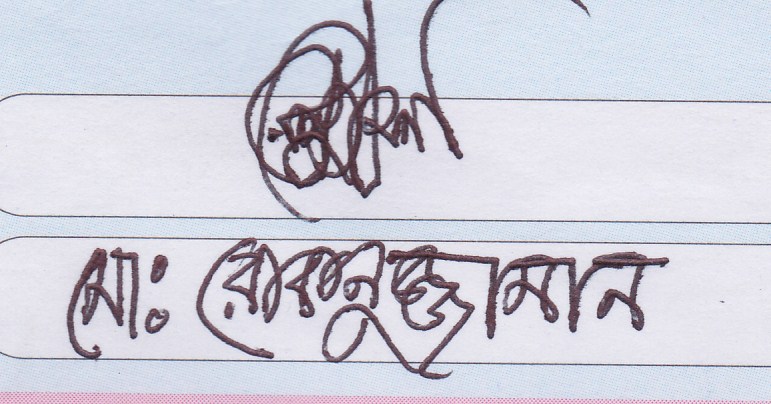 মোঃ রোকনুজ্জামান